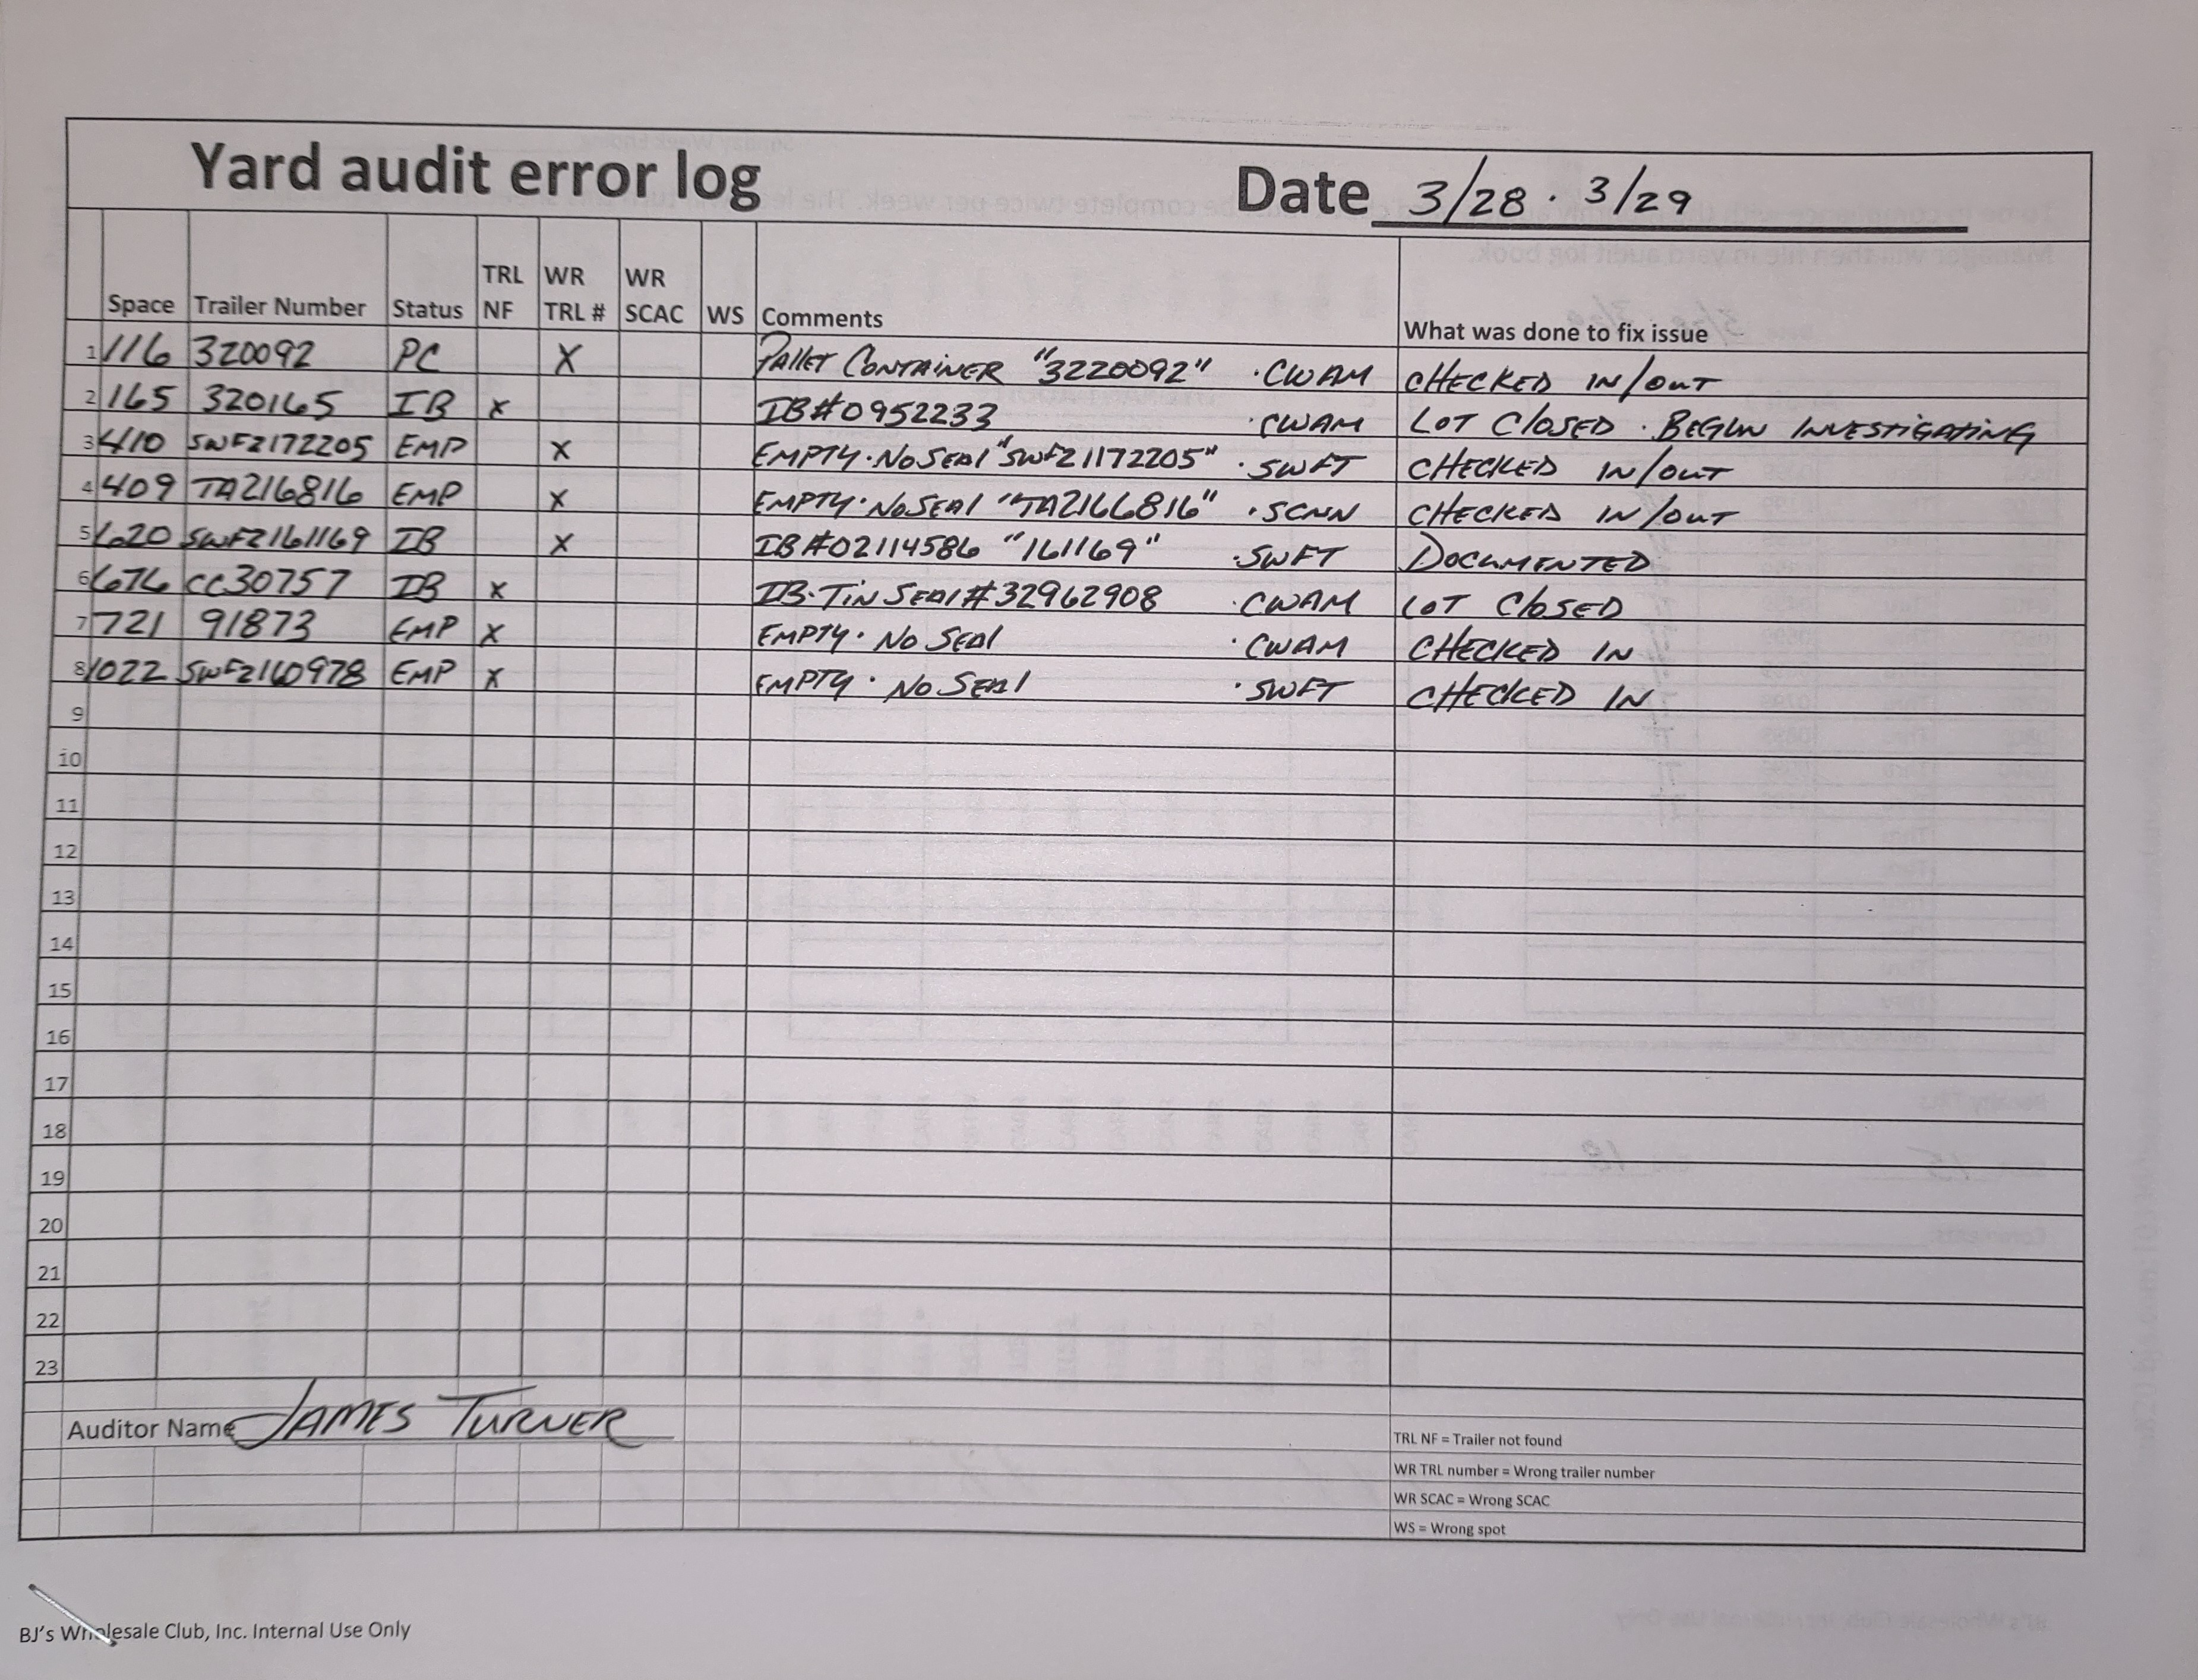 Yard audit error log Date 3/28 · 3/29
Space Trailer Number Status TRL NF WR TRL # WR SCAC WS Comments What was done to fix issue
1 116 320092 PC X PALLET CONTAINER "3220092" · CWAM CHECKED IN/OUT
2 165 320165 IB X IB#0952233 · CWAM LOT CLOSED · BEGUN INVESTIGATING
3 410 SWFZ172205 EMP X EMPTY · NO SEAL "SWFZ1172205" · SWFT CHECKED IN/OUT
4 409 TA216816 EMP X EMPTY · NO SEAL "TA2166816" · SCNN CHECKED IN/OUT
5 620 SWFZ161169 IB X IB#02114586 "161169" · SWFT DOCUMENTED
6 676 CC30757 IB X IB · TIN SEAL #32962908 · CWAM LOT CLOSED
7 721 91873 EMP X EMPTY · NO SEAL · CWAM CHECKED IN
8 1022 SWFZ160978 EMP X EMPTY · NO SEAL · SWFT CHECKED IN
9
10
11
12
13
14
15
16
17
18
19
20
21
22
23
Auditor Name JAMES TURNER
TRL NF = Trailer not found
WR TRL number = Wrong trailer number
WR SCAC = Wrong SCAC
WS = Wrong spot
BJ's Wholesale Club, Inc. Internal Use Only